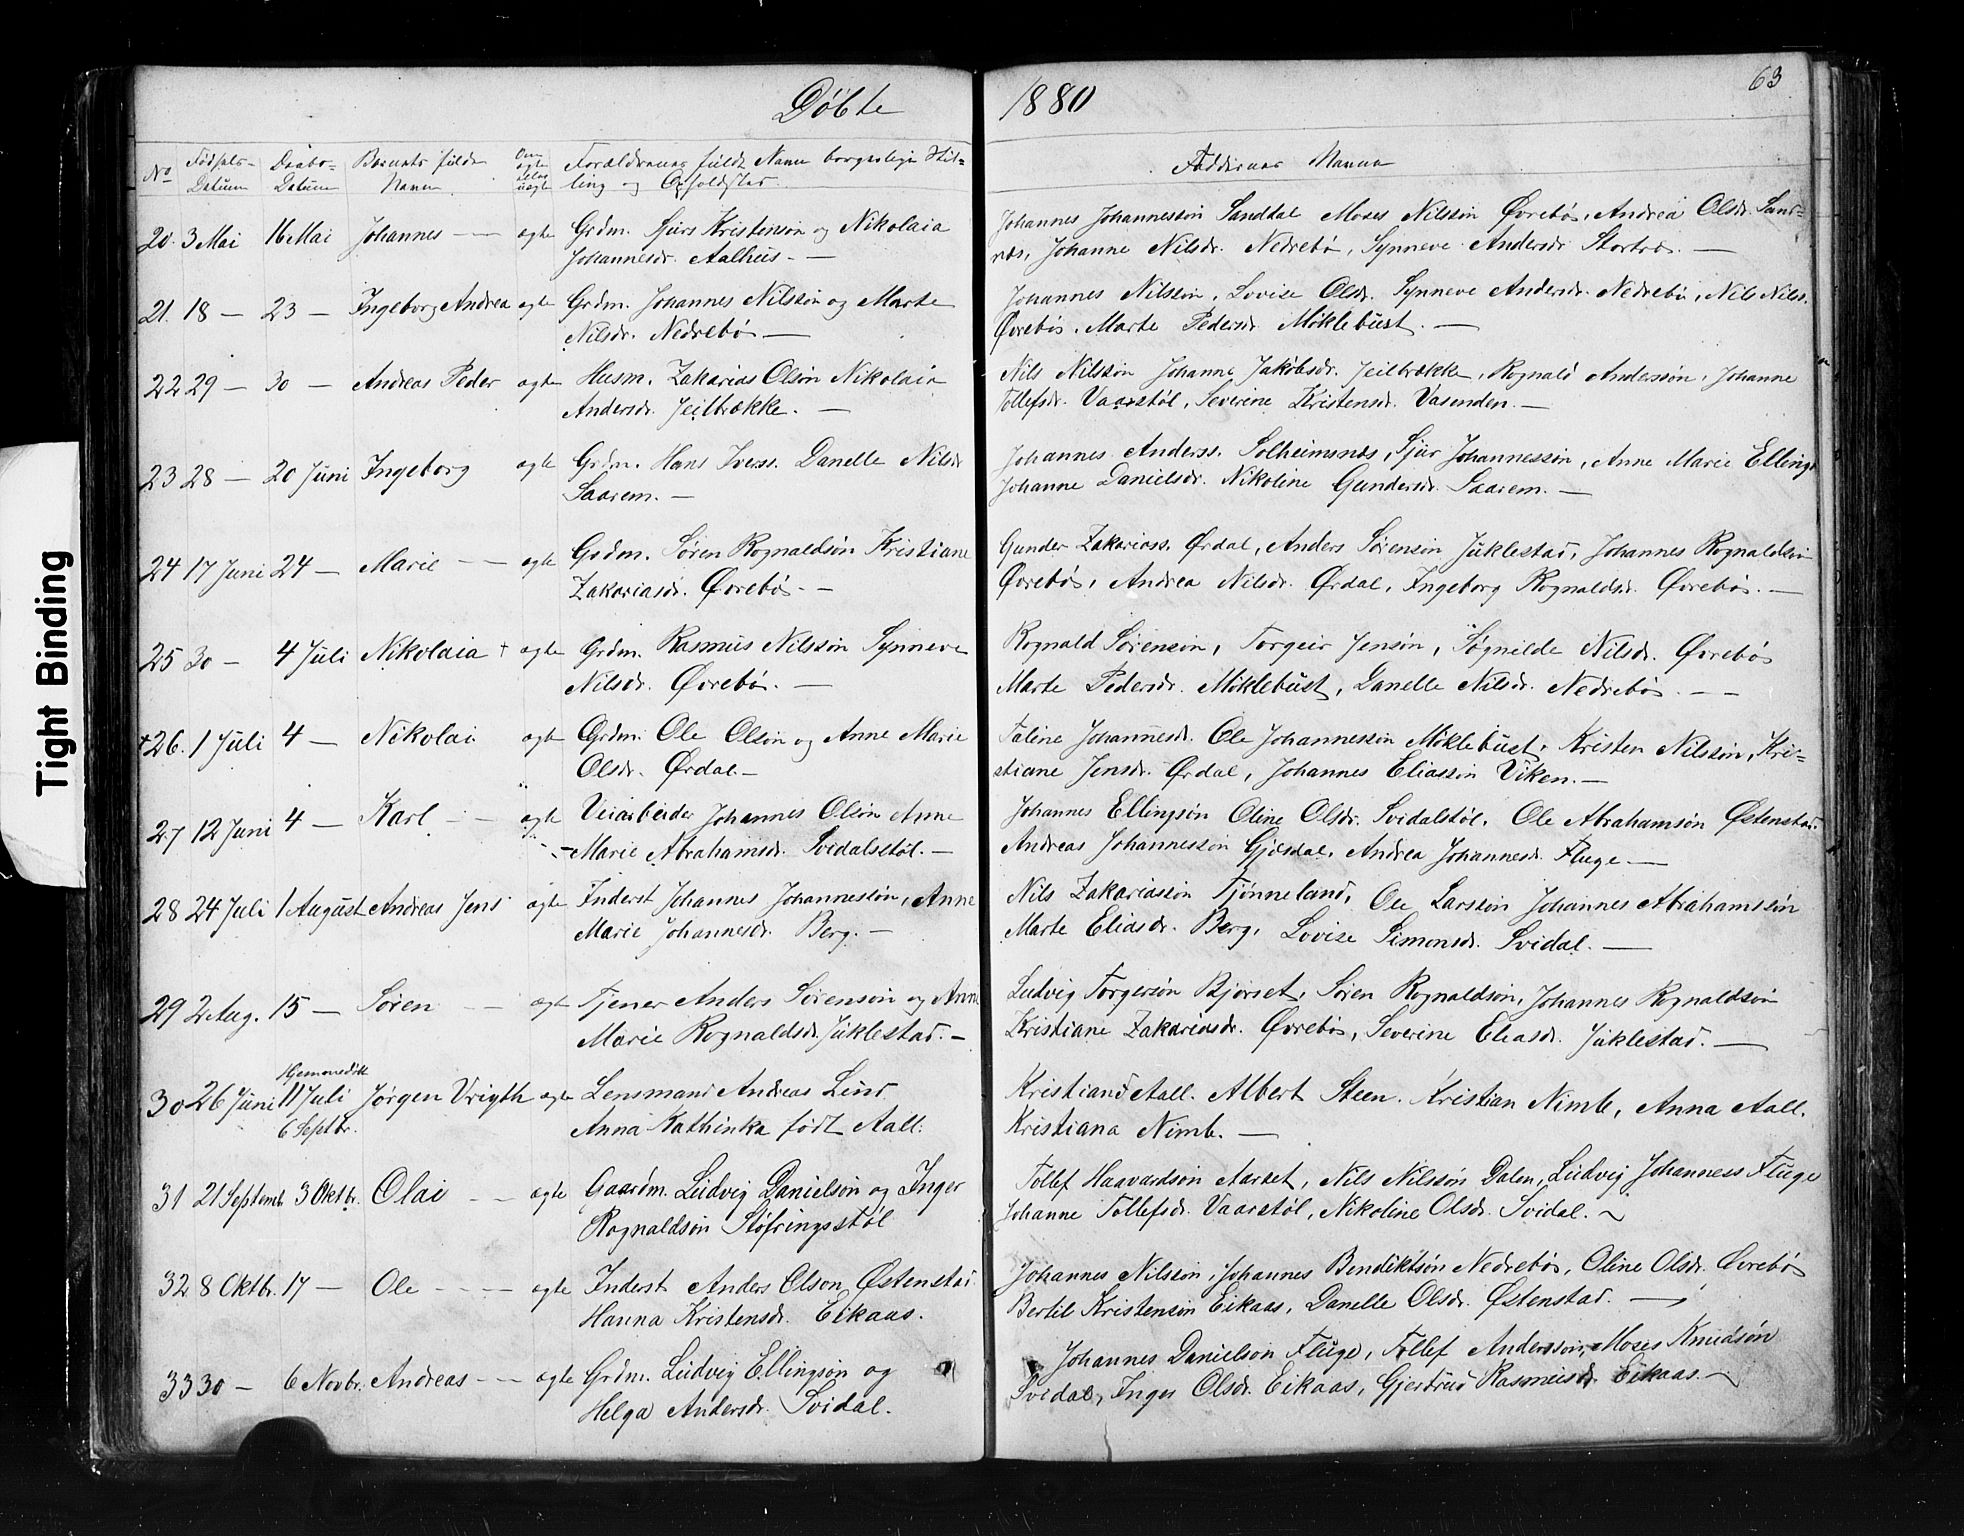 Døbte 1880
63
No Fødsels- Daabs- Barnets fulde Om ægte eller uægte Forældrenes fulde Navn borgerlige Stil- Faddernes Navne
Datum Datum Navn ling og Opholdsted
20. 3 Mai 16 Mai Johannes — ægte Grdm. Sjurs Kristensøn og Nikolaia
Johannesdr. Aalhus. —
Johannes Johannessøn Sanddal Moses Nilssøn Øvrebø, Andrea Olsdr. Sand-
næs, Johanne Nilsdr. Nedrebø, Synneve Andersdr Stortræ. —
21. 18 — 23 — Ingeborg Andrea ægte Grdm. Johannes Nilssøn og Marte
Nilsdr. Nedrebø —
Johannes Nilssøn, Lovise Olsdr. Synneve Andersdr. Nedrebø, Nils Nilss.
Øvrebø, Marte Pedersdr. Møklebust. —
22 29 — 30 — Andreas Peder ægte Husm. Zakarias Olsøn Nikolaia
Andersdr. Jeiltrække. —
Nils Nilssøn Johanne Jakobsdr. Jeiltrække, Rognald Anderssøn, Johanne
Tollefsdr. Vaarstøl, Severine Kristensdr. Vasenden. —
23 28 — 20 Juni Ingeborg ægte Grdm. Hans Iverss. Danelle Nilsdr
Saarem. —
Johannes Anderss. Solheimsnæs, Sjur Johannessøn, Anne Marie Ellings
Johanne Danielsdr. Nikoline Gundersdr. Saarem. —
24 17 Juni 24 — Marie — — ægte Grdm. Søren Rognaldsøn Kristiane
Zakariasdr. Øvrebø. —
Gunder Zakariass. Ørdal, Anders Sørensøn Juklestad, Johannes Rognaldsøn
Øvrebø, Andrea Nilsdr. Ørdal, Ingeborg Rognaldsdr. Øvrebø. —
25 30 — 4 Juli Nikolaia + ægte Grdm. Rasmus Nilssøn Synneve
Nilsdr. Øvrebø. —
Rognald Sørensøn, Torgeir Jensøn, Søgnilde Nilsdr. Øvrebø
Marte Pedersdr. Møklebust, Danelle Nilsdr. Nedrebø. — —
+26. 1 Juli 4 — Nikolai ægte Grdm. Ole Olsøn og Anne Marie
Olsdr. Ørdal. —
Taline Johannesdr. Ole Johannessøn Møklebust, Kristen Nilssøn, Kri-
stiane Jensdr. Ørdal, Johannes Eliassøn Viken. —
27 12 Juni 4 — Karl — ægte Veiarbeider Johannes Olsøn Anne
Marie Abrahamsdr. Svidalstøl. —
Johannes Ellingsøn Oline Olsdr. Svidalstøl, Ole Abrahamsøn Østenstad.
Andreas Johannessøn Gjesdal, Andrea Johannesdr. Fluge. —
28 24 Juli 1 August Andreas Jens ægte Inderst Johannes Johannessøn, Anne
Marie Johannesdr. Berg. —
Nils Zakariassøn Tjønneland, Ole Larssøn Johannes Abrahamssøn
Marte Eliasdr. Berg, Lovise Simonsdr. Svidal. —
29 2 Aug. 15 — Søren — ægte Tjener Anders Sørensøn og Anne
Marie Rognaldsdr. Juklestad. —
Ludvig Torgersøn Bjørset, Søren Rognaldsøn, Johannes Rognaldsøn
Kristiane Zakariasdr. Øvrebø, Severine Eliasdr. Juklestad. —
Hjemmedøbt
30 26 Juni 11 Juli Jørgen Vrigth ægte Lensmand Andreas Lind
6 Septbr. Anna Kathinka født Aall.
Kristiand Aall. Albert Steen. Kristian Nimb, Anna Aall.
Kristiana Nimb. —
31 21 Septemb 3 Oktbr. Olai — — ægte Gaardm. Ludvig Danielsøn og Inger
Rognaldsøn Støfringsstøl
Tollef Haavardsøn Aarset, Nils Nilssøn Dalen, Ludvig Johanness Fluge
Johanne Tollefsdr. Vaarstøl, Nikoline Olsdr. Svidal. ~
32 8 Oktbr. 17 — Ole — — — ægte Inderst Anders Olson Østenstad
Hanna Kristensdr. Eikaas.
Johannes Nilssøn, Johannes Bendiktsøn Nedrebø, Oline Olsdr. Øvrebø
Bertil Kristensøn Eikaas, Danelle Olsdr. Østenstad. —
33 30 — 6 Novbr. Andreas — — ægte Grdm. Ludvig Ellingsøn og
Helga Andersdr. Svidal.
Johannes Danielson Fluge, Tollef Anderssøn, Moses Knudsøn
Svidal, Inger Olsdr. Eikaas, Gjertrud Rasmusdr Eikaas. ~
Tight Binding